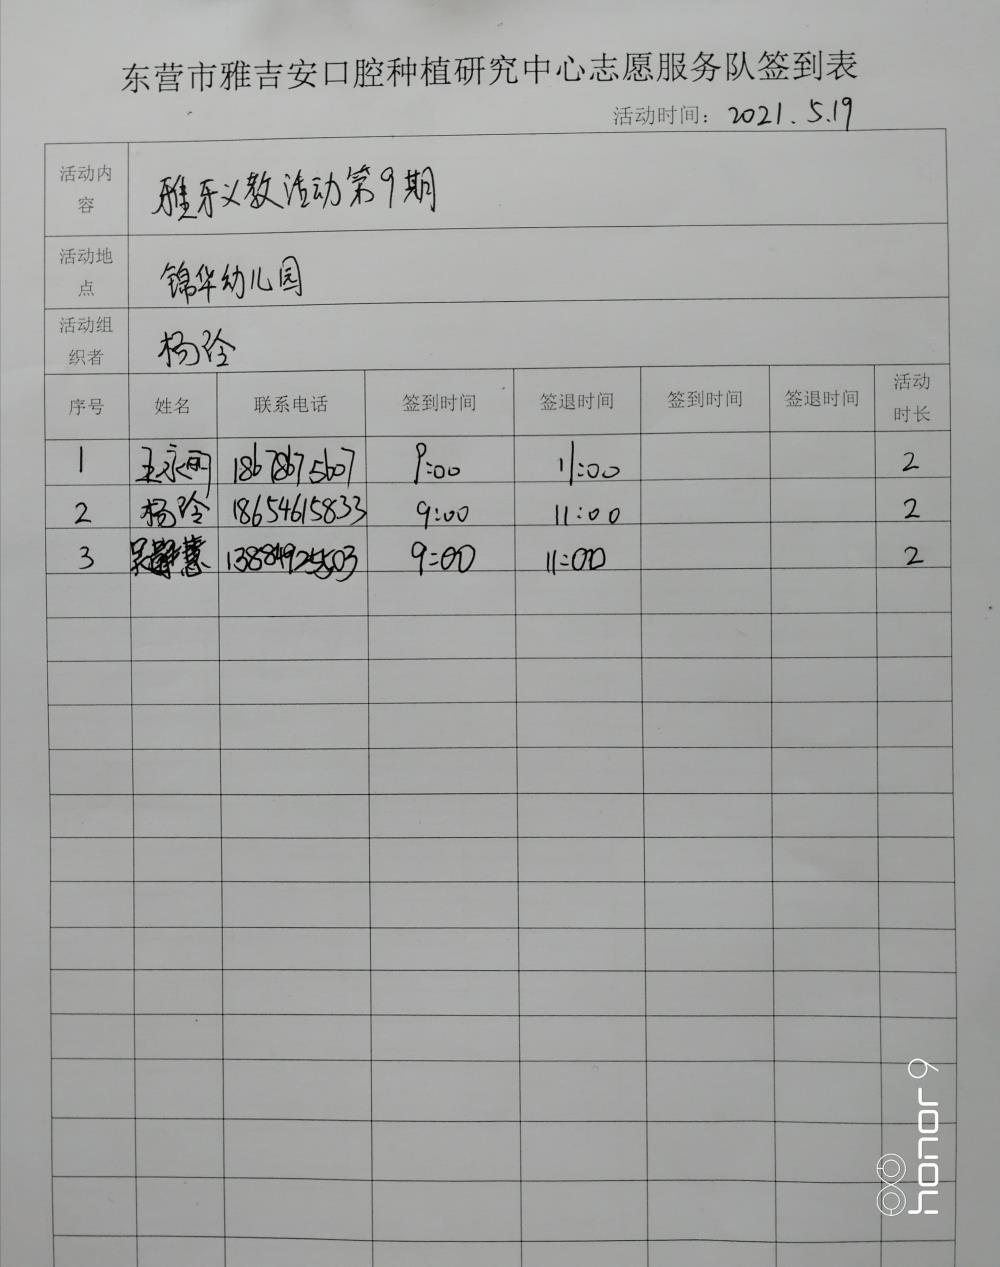 东营市雅吉安口腔种植研究中心志愿服务队签到表
活动时间: 2021.5.19
活动内容 雅牙义教活动第9期
活动地点 锦华幼儿园
活动组织者 杨玲
序号 姓名 联系电话 签到时间 签退时间 签到时间 签退时间 活动时长
1 18678675607 9:00 11:00 2
2 杨玲 18654615833 9:00 11:00 2
3 9:00 11:00 2
honor 9